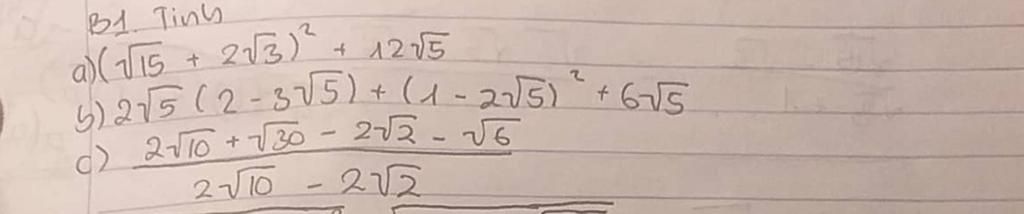 B1. Tính
a) (√15 + 2√3)² + 12√5
b) 2√5 (2 - 3√5) + (1 - 2√5)² + 6√5
c) (2√10 + √30 - 2√2 - √6) / (2√10 - 2√2)